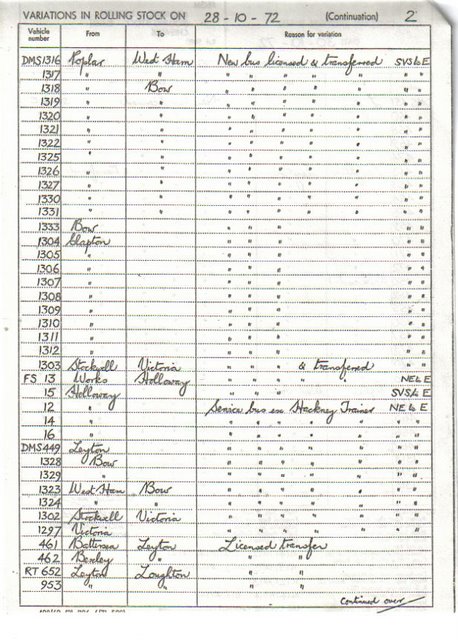 VARIATIONS IN ROLLING STOCK ON 28-10-72 (Continuation) 2
Vehicle number From To Reason for variation
DMS1316 Poplar West Ham New bus licensed & transferred SVS & E
1317 " " " " " " " " "
1318 " Bow " " " " " " "
1319 " " " " " " " " "
1320 " " " " " " " " "
1321 " " " " " " " " "
1322 " " " " " " " " "
1325 " " " " " " " " "
1326 " " " " " " " " "
1327 " " " " " " " " "
1330 " " " " " " " " "
1331 " " " " " " " " "
1333 Bow " " " " "
1304 Clapton " " " " "
1305 " " " " " "
1306 " " " " " "
1307 " " " " " "
1308 " " " " " "
1309 " " " " " "
1310 " " " " " "
1311 " " " " " "
1312 " " " " " "
1303 Stockwell Victoria " " " & transferred " "
FS 13 Works Holloway " " " " " NE & E
15 Holloway " " " SVS & E
12 " Service bus ex Hackney Trainer NE & E
14 " " " " " " " " "
16 " " " " " " " " "
DMS449 Leyton " " " " " " "
1328 Bow " " " " " " "
1329 " " " " " " " "
1323 West Ham Bow " " " " " " "
1324 " " " " " " " " "
1302 Stockwell Victoria " " " " " " "
1297 Victoria " " " " " " "
461 Battersea Leyton Licensed transfer
462 Bexley " " "
RT 652 Leyton Loughton " "
953 " " " "
Continued over